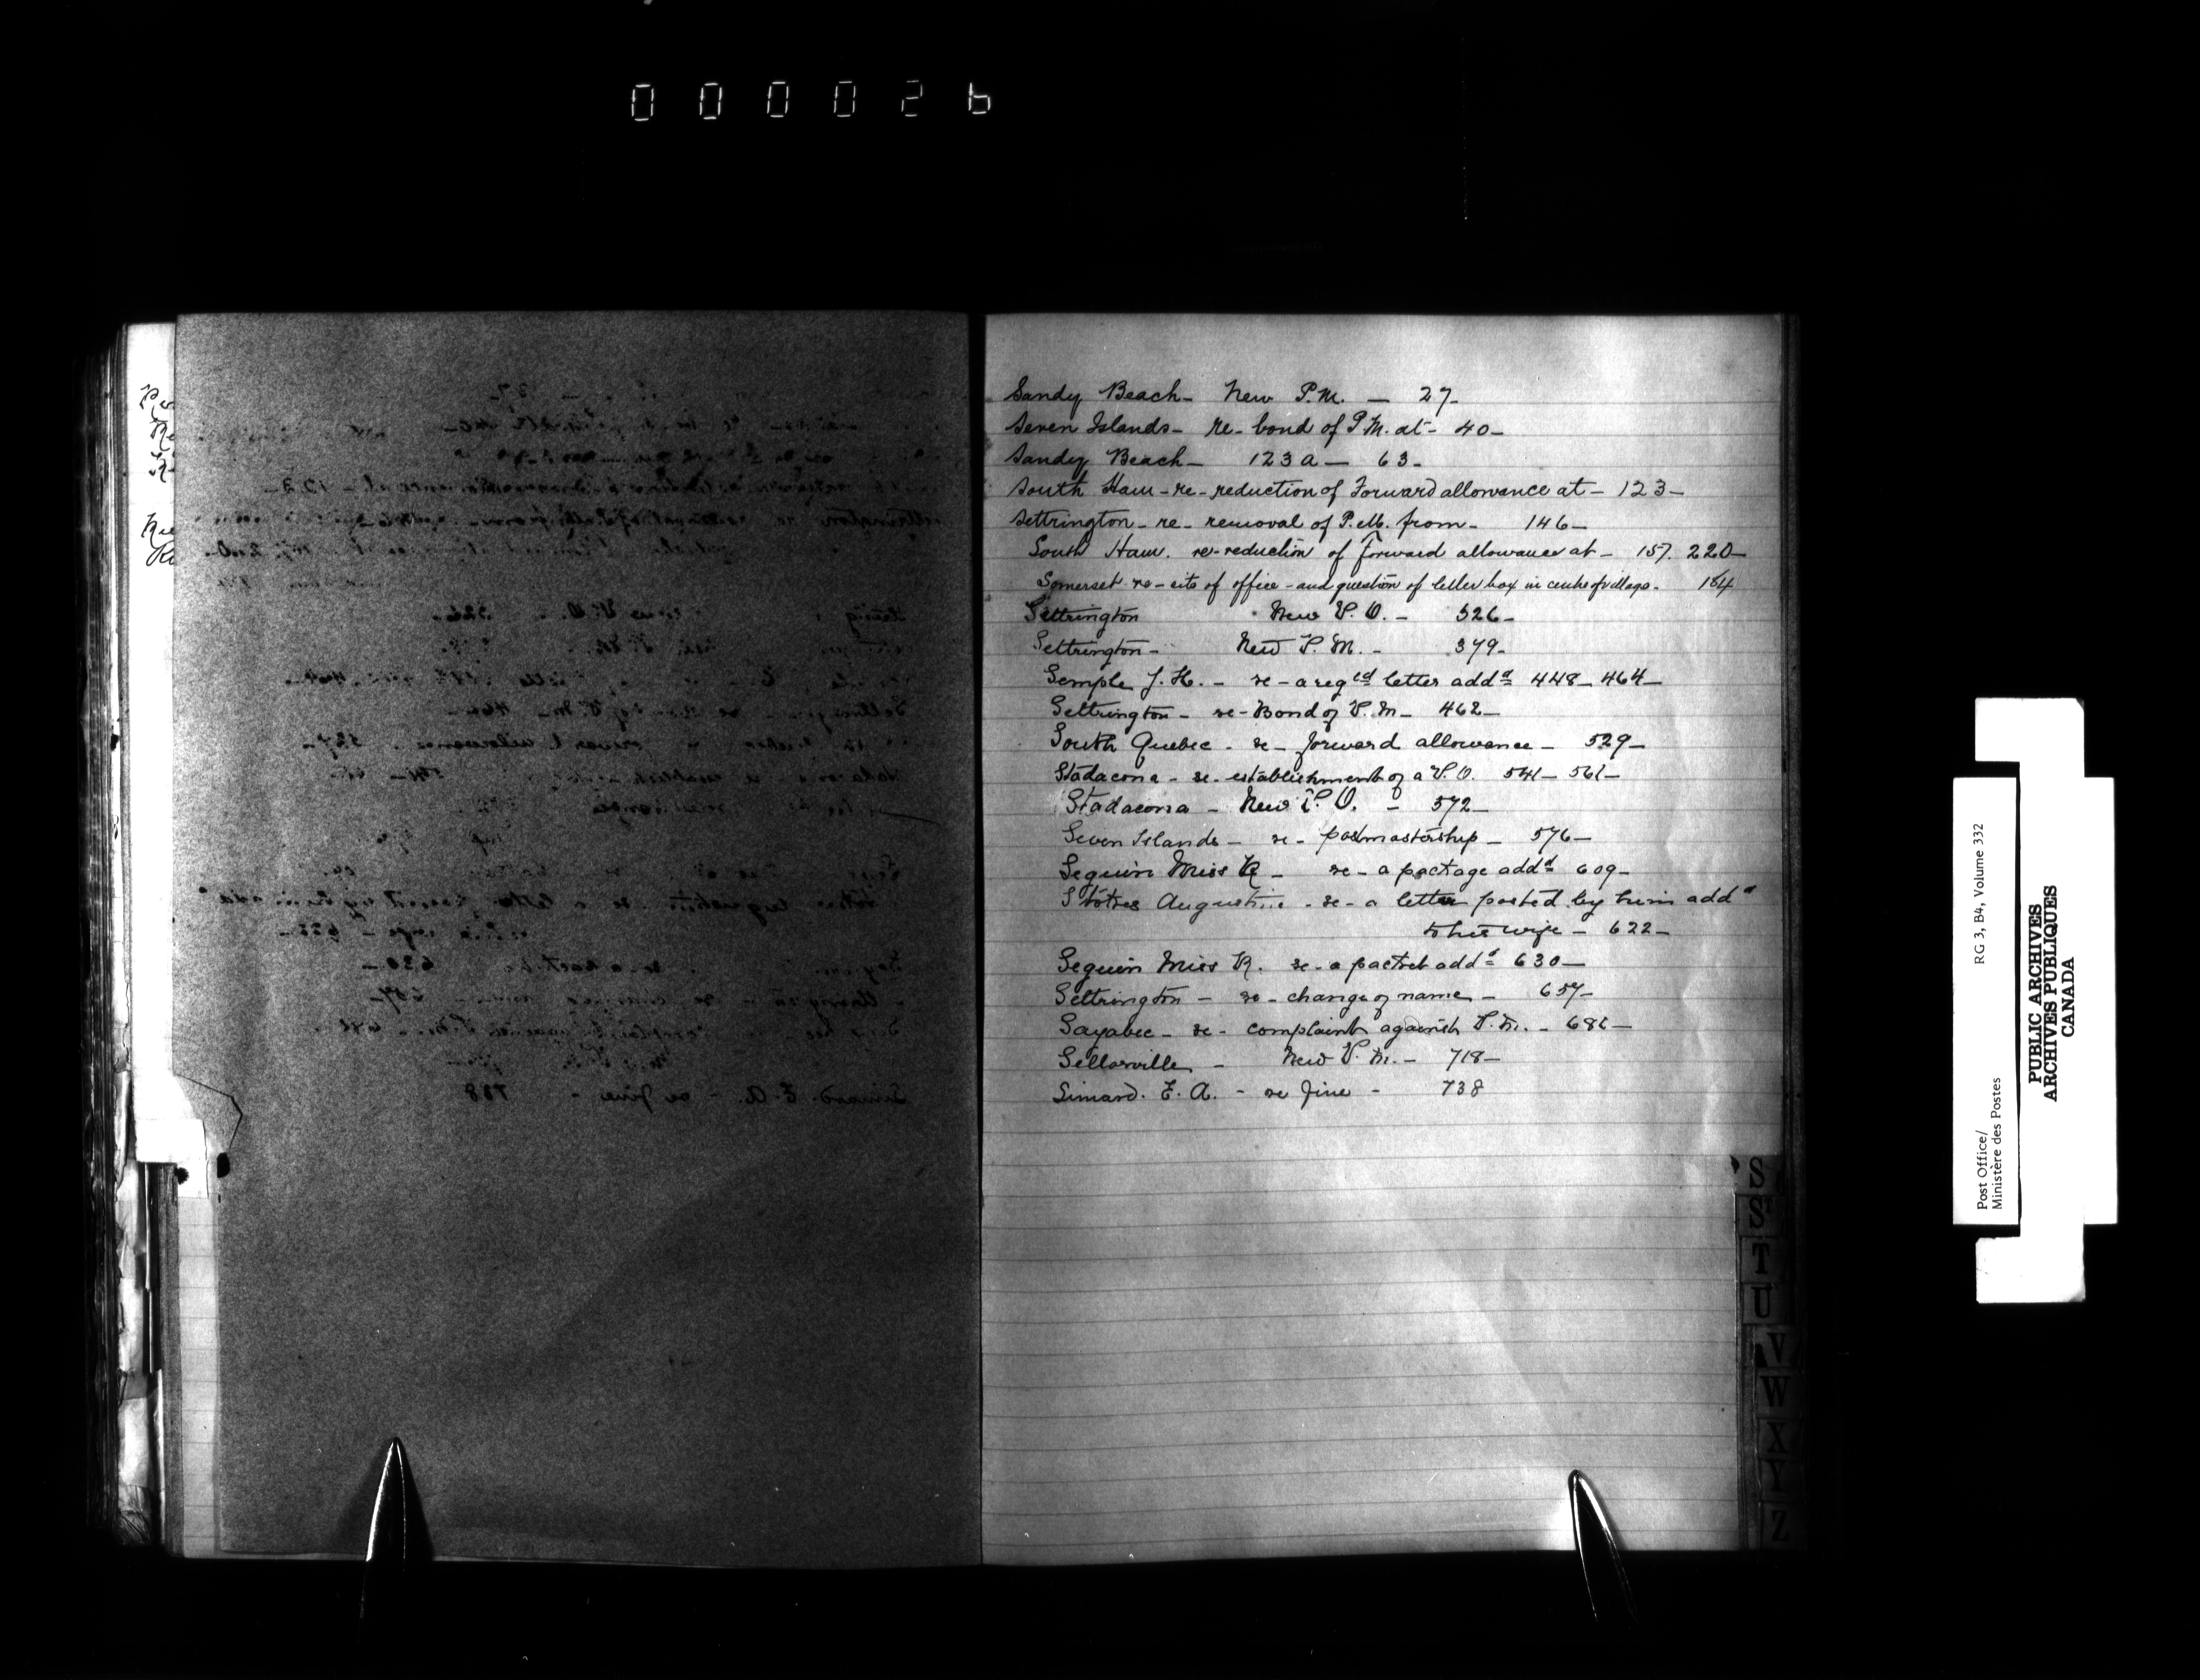 000026
Sandy Beach - New P.M. - 27 -
Seven Islands - re - bond of P.M. at - 40 -
Sandy Beach - 123 a - 63 -
South Ham - re - reduction of Forward allowance at - 123 -
Settrington - re - removal of P.M. from - 146 -
South Ham. re - reduction of Forward allowance at - 157. 220 -
Somerset - re - site of office - and question of letter box in centre of village - 184
Settrington New P.O. - 326 -
Settrington - New P.M. - 379 -
Semple J.H. - re - a regtd letter addd 448 - 464 -
Settrington - re - Bond of P.M - 462 -
South Quebec - re - forward allowance - 529 -
Stadacona - re - establishment of a P.O. 541 - 561 -
Stadacona - New P.O. - 572 -
Seven Islands - re - postmastership - 576 -
Seguin Miss R - re - a package addd 609 -
Augustine - re - a letter posted by him addd
to his wife - 622 -
Seguin Miss R. re - a packet addd 630 -
Settrington - re - change of name - 657 -
Sayabec - re - complaint against P.M. - 681 -
Sellarville - New P.M. - 718 -
Simard. E.A. - re fine - 738
S
St
T
U
V
W
X
Y
Z
Post Office/
Ministère des Postes
RG 3, B4, Volume 332
PUBLIC ARCHIVES
ARCHIVES PUBLIQUES
CANADA